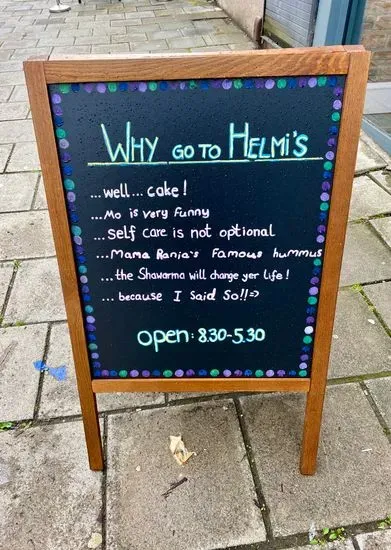 WHY GO TO HELMI'S
...well... cake!
...Mo is very funny
...self care is not optional
...Mama Rania's Famous hummus
...the Shawarma will change yer life!
... because I said so!!=>
open: 8.30-5.30